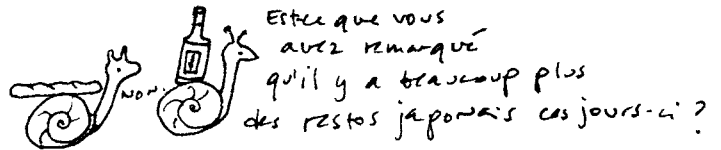 Estce que vous
avez remarqué
qu'il y a beaucoup plus
NON.
des restos japonais ces jours-ci ?